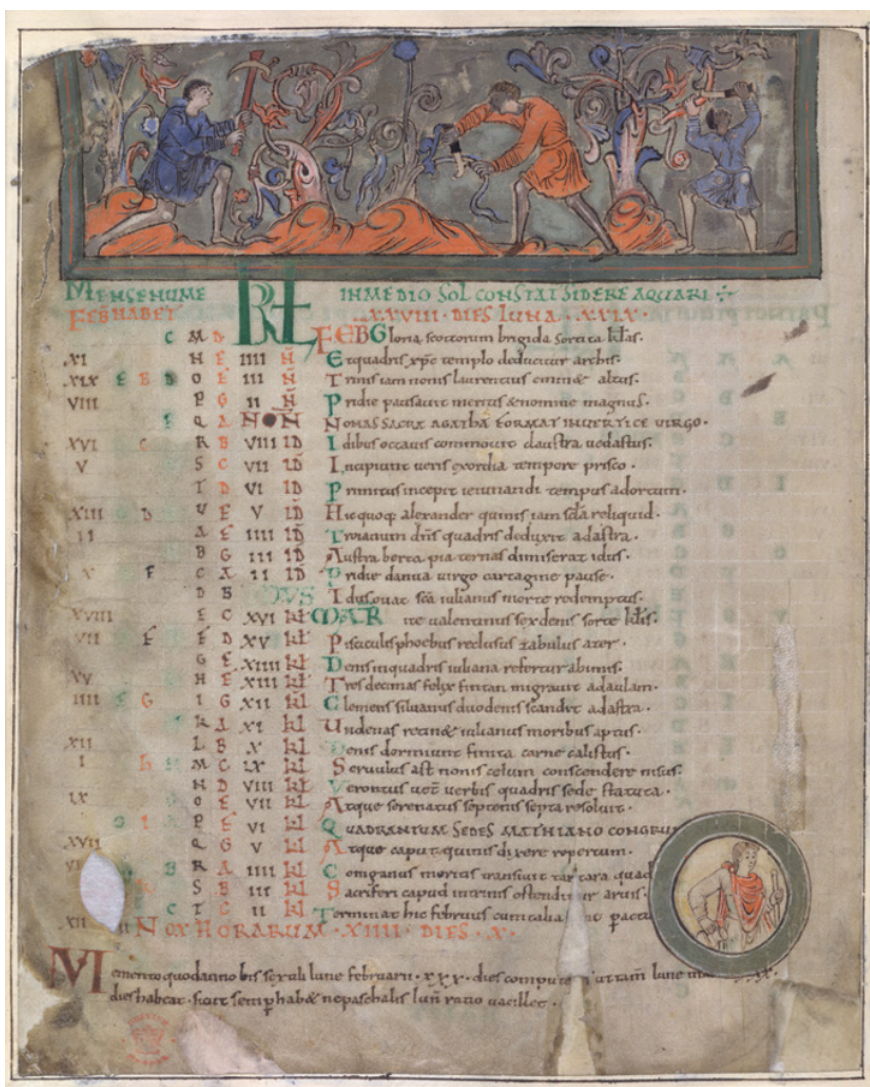 MENSE NUME KL IN MEDIO SOL CONSTAT SIDERE AQUARI
FEB HABET XXVIII · DIES LUNA · XXIX ·
C M D FEB Gloria scottorum brigida sortita kłas.
XI N E IIII N Et quadris xpc templo deducitur arcbis.
XIX O F III N Trinis iam nonis laurentius eminet altus.
VIII P G II N Pridie pausavit meritus et nomine magnus.
Q A NON NONAS SACRA AGATHA FORMAT IN VERTICE VIRGO.
XVI C R B VIII ID Idibus octavis commovit claustra vedastus.
V S C VII ID Incipiunt veris exordia tempore prisco.
T D VI ID Primitus incepit ieiunandi tempus adortum.
XIII D U E V ID Hic quoq; alexander quinis iam sc̄a reliquid.
II A F IIII ID Troianum dn̄s quadris deduxit ad astra.
B G III ID Austraberta pia ternas dimiserat idus.
X F C A II ID Pridie danua virgo cartagine pause.
D B IDUS Idus ovat sc̄a iulianus morte redemptus.
XVIII E C XVI kł MAR te valentinus sexdenis sorte kłis.
VII F D XV kł Pisciculis phoebus reclusus tabulus axer.
G E XIIII kł Denis in quadris iuliana refertur abimis.
XV H F XIII kł Tres decimas felix finitan migravit ad aulam.
IIII G I G XII kł Clemens silvanus duodenis scandit ad astra.
K A XI kł Undenas retinet iulianus moribus aptus.
XII L B X kł Denis dormiunt finita carne calistus.
I M C IX kł Servulus ast nonis celum conscendere nisus.
N D VIII kł Verontus verbis quadris sede statuta.
IX O E VII kł Atque serenatus septenis septa resolvit.
P F VI kł QUADRANTUM SEDES MATHIANO CONGRU
XVII Q G V kł Atque caput quinis dixere repertum.
R A IIII kł Comganus mortis transivit tartara quad
S B III kł Sacriferi capud intrinis ostenditur arvis.
C T C II kł Terminat hic februus cum talia pacta
NOX HORARUM · XIIII · DIES · X ·
Memento quod anno bis sextili lune februarii · xxx · dies comput lune
dies habeat · sicut semp habet ne paschalis lun̄ ratio vacillet ·